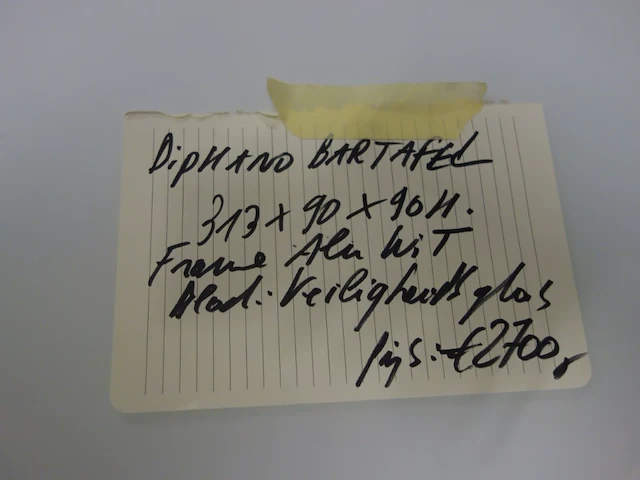 DIPHANO BARTAFEL
313 x 90 x 90 H.
Frame Alu WIT
Blad: Veiligheidsglas
prijs: €2700,